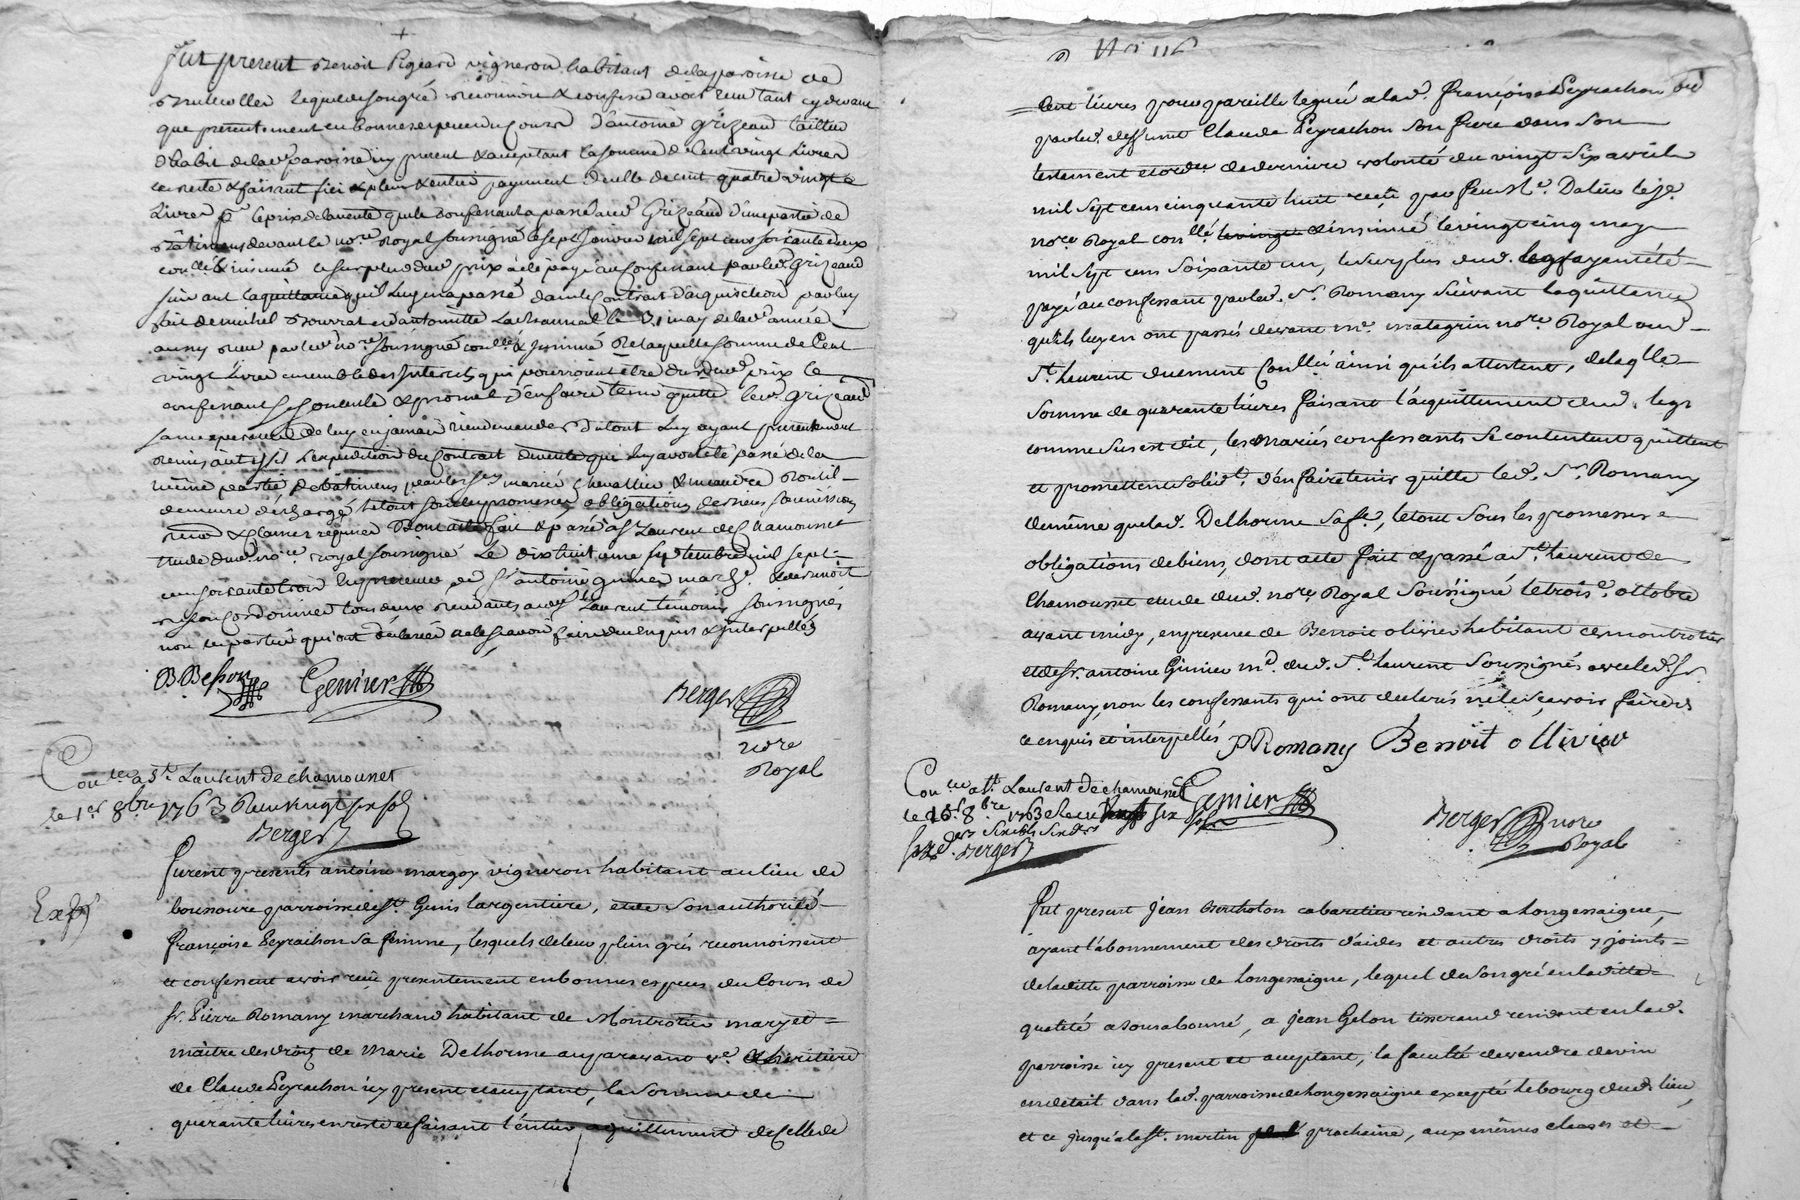 fut present Benoit Pigeard vigneron habitant de la paroisse de
Brullcolles lequel de son gré reconnoit & confesse avoir reçu tant cy devant
que presentement en bonnes especes du cours d'antoine Grizeaud tailleur
d'habit de lad. paroisse icy present & acceptant la somme de Cent vingt Livres
de reste & faisant fin & plein & entier payement d'icelle de cent quatre vingt
Livres pr. le prix de la vente que le confessant a passé aud. Grizeaud d'une partie de
Bâtimens devant le nore. Royal soussigné le sept janvier mil sept cens soixante deux
conllé & insinué le surplus dud. prix a été payé au confessant par led. Grizeaud
suivant la quittance qu'il luy en a passé dans le Contrat d'acquisition par luy
fait de michel Bourrat et d'antoinette Lachaunal le 31 may de lad. année
aussy reçu par led. nore. soussigné conllé & insinué De laquelle somme de Cent
vingt Livres ensemble des Interets qui pourroient être dus dud. prix le
confessant se contente & promet d'en faire tenir quitte led. Grizeaud
sans espérance de luy en jamais rien demander Du tout Luy ayant presentement
remis L'expedition du Contrat de vente qui luy avoit été passé de la
même partie de bâtimens par les mariés Chevallier &
demeure déchargé le tout sous les promesses obligations de biens soumissions
renon. & clauses requises Dont acte fait & passé à St. Laurent de Chamousset
étude dud. nore. royal soussigné Le dix huitieme septembre mil sept
cens soixante trois En presence de Sr. antoine Genier march. & de Benoit
Besson Cordonnier tous deux residants aud. St. Laurent témoins soussignés
non les parties qui ont déclarés ne le scavoir faire de ce enquis & interpellés
B Besson Genier Berger
nore
Royal
Conlé a St. Laurent de chamousset
le 1er 8bre 1763 Reçu vingt six sols
Berger
Exp.
furent presents antoine margoy vigneron habitant au lieu de
boussoure parroisse de St. Genis largentiere, et de Son authorité
françoise Peyrachon sa femme, lesquels de leur plein gré reconnoissent
et confessent avoir reçu presentement en bonnes especes du Cours de
Sr. Pierre Romany marchand habitant de Montrotier mary et
maître des droits de Marie Delhorme auparavant ve. & heritiere
de Claude Peyrachon icy present et acceptant, la somme de
quarante livres en reste et faisant l'entier acquittement de Celle de
cent livres pour pareille leguée a lad. françoise Peyrachon
par led. deffunt Claude Peyrachon son frere dans son
testament et ordce. de derniere volonté du vingt six avril
mil sept cens cinquante huit reçu par feu Me. Dalin leje.
nore. Royal conllé et insinué le vingt cinq may
mil sept cens soixante un, le surplus dud. legs ayant été
payé au confessant par led. Sr. Romany suivant la quittance
qu'ils luy en ont passés devant me. matagrin nore. Royal aud.
St. laurent duement Conllé ainsi qu'ils attestent, de laqlle
somme de quarante livres faisant l'acquittement dud. legs
comme sus est dit, les mariés confessants se contentent quittent
et promettent solidt. d'en faire tenir quitte led. Sr. Romany
de même que lad. Delhorme sa fe., le tout sous les promesses
obligations de biens, dont acte fait & passé a St. laurent de
Chamousset etude dud. nore. Royal Soussigné le trois e. octobre
avant midy, en presence de Benoit olivier habitant de montrotier
et de Sr. antoine Genier md. dud. St. laurent Soussignés avec led. Sr.
Romany, non les confessants qui ont declarés ne le scavoir faire de
ce enquis et interpellés P Romany Benoit ollivier
Conlé a St. Laurent de chamousset Genier
le 16 8bre. 1763 Reçu six
sols Berger nore
Berger Royal
fut present jean Berthoton cabaretier residant a Longessaigne,
ayant l'abonnement des droits d'aides et autres droits y joints
de la ditte parroisse de Longessaigne, lequel de son gré en la ditte
qualité a sousabonné, a jean Gelon tisserand residant en lad.
parroisse icy present et acceptant, la faculté de vendre de vin
en detail dans lad. parroisse de longessaigne excepté le bourg dud. lieu,
et ce jusqu'a la St. martin prochaine, aux mêmes clauses et